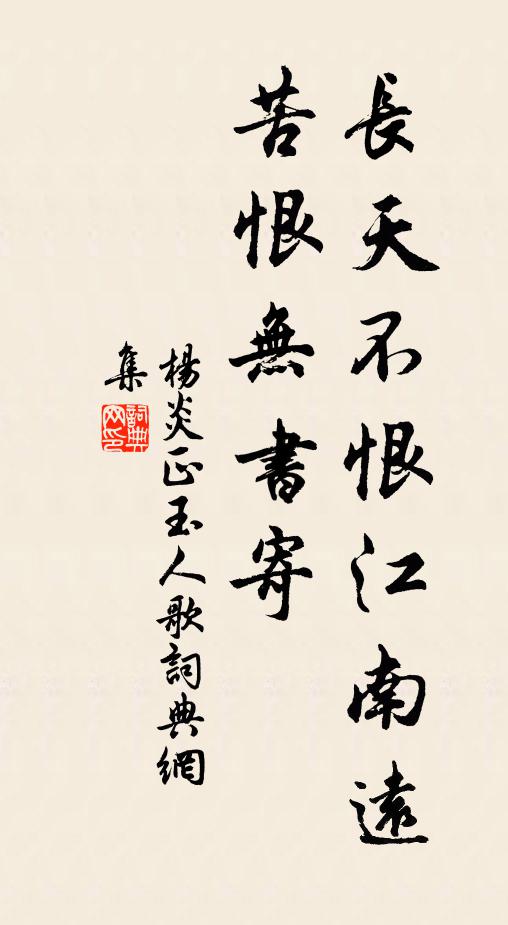 長天不恨江南遠
苦恨無書寄
楊炎正玉人歌詞典網
集
詞典網印